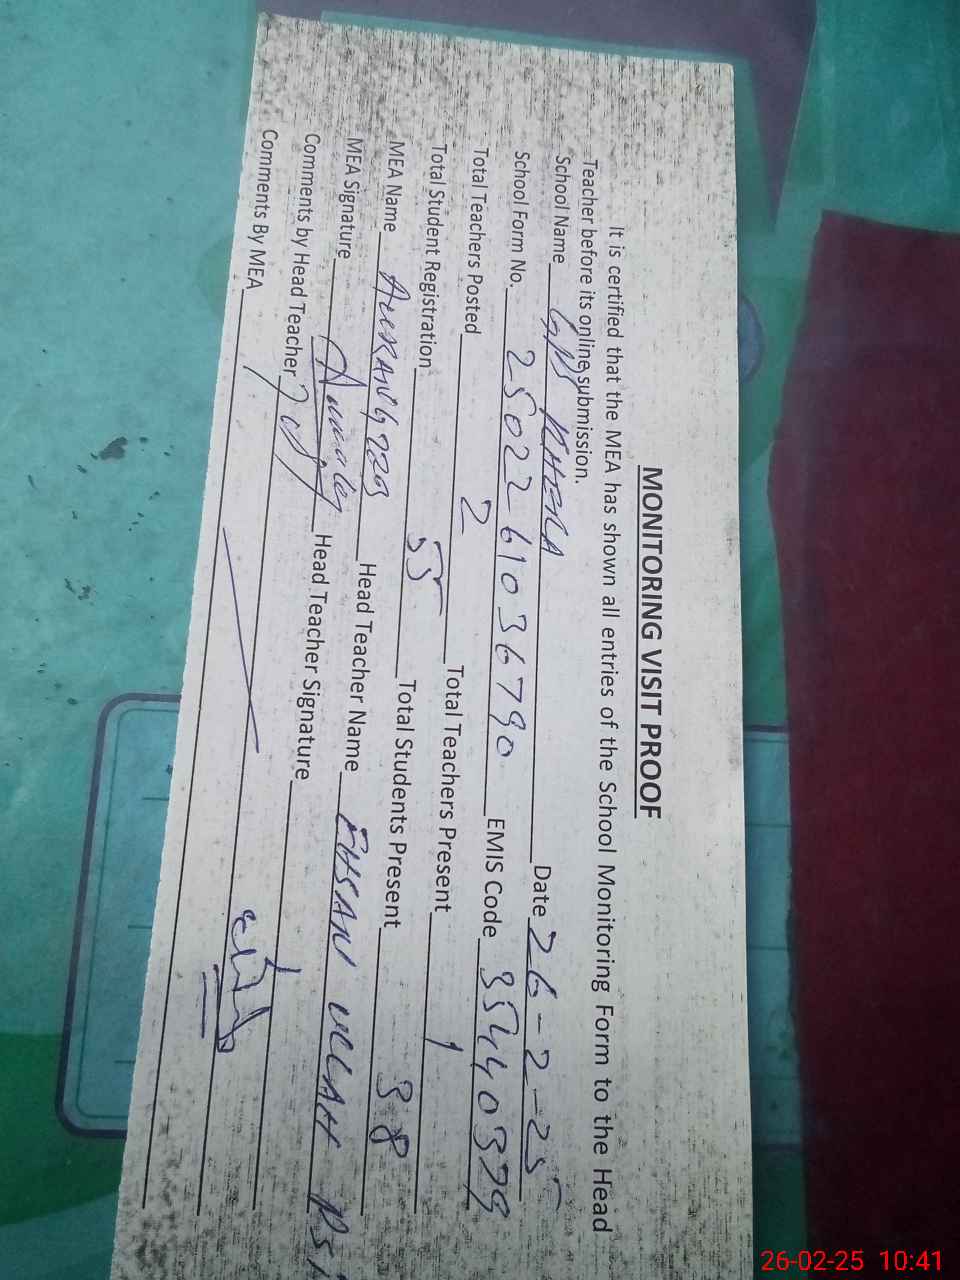 MONITORING VISIT PROOF
It is certified that the MEA has shown all entries of the School Monitoring Form to the Head
Teacher before its online submission.
School Name GPS KHERA Date 26-2-25
School Form No. 2502261036790 EMIS Code 35440379
Total Teachers Posted 2 Total Teachers Present 1
Total Student Registration 55 Total Students Present 38
MEA Name AURANGZEB Head Teacher Name EHSAN ULLAH PST
MEA Signature Head Teacher Signature
Comments by Head Teacher
Comments By MEA
26-02-25 10:41